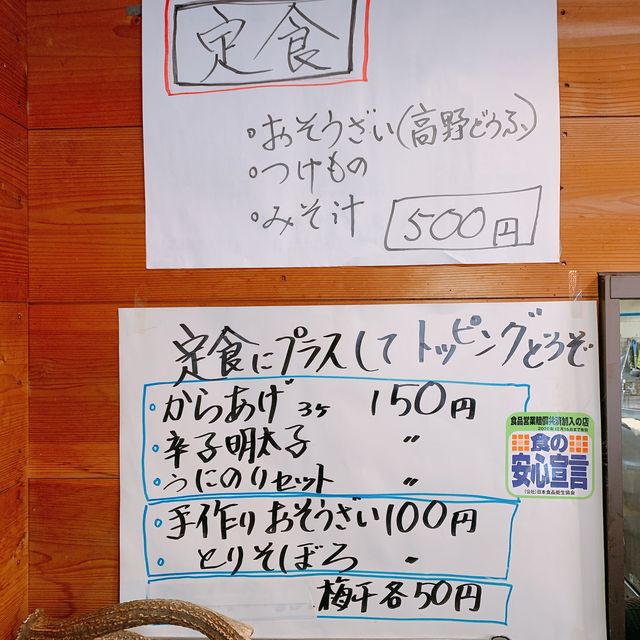 定食
・おそうざい(高野どうふ)
・つけもの
・みそ汁 500円
定食にプラスして トッピングどうぞ
・からあげ 3ケ 150円
・辛子明太子 〃
・うにのりセット 〃
・手作りおそうざい100円
・とりそぼろ 〃
梅干各50円
食品営業賠償共済加入の店
食の
安心宣言
(公社)日本食品衛生協会